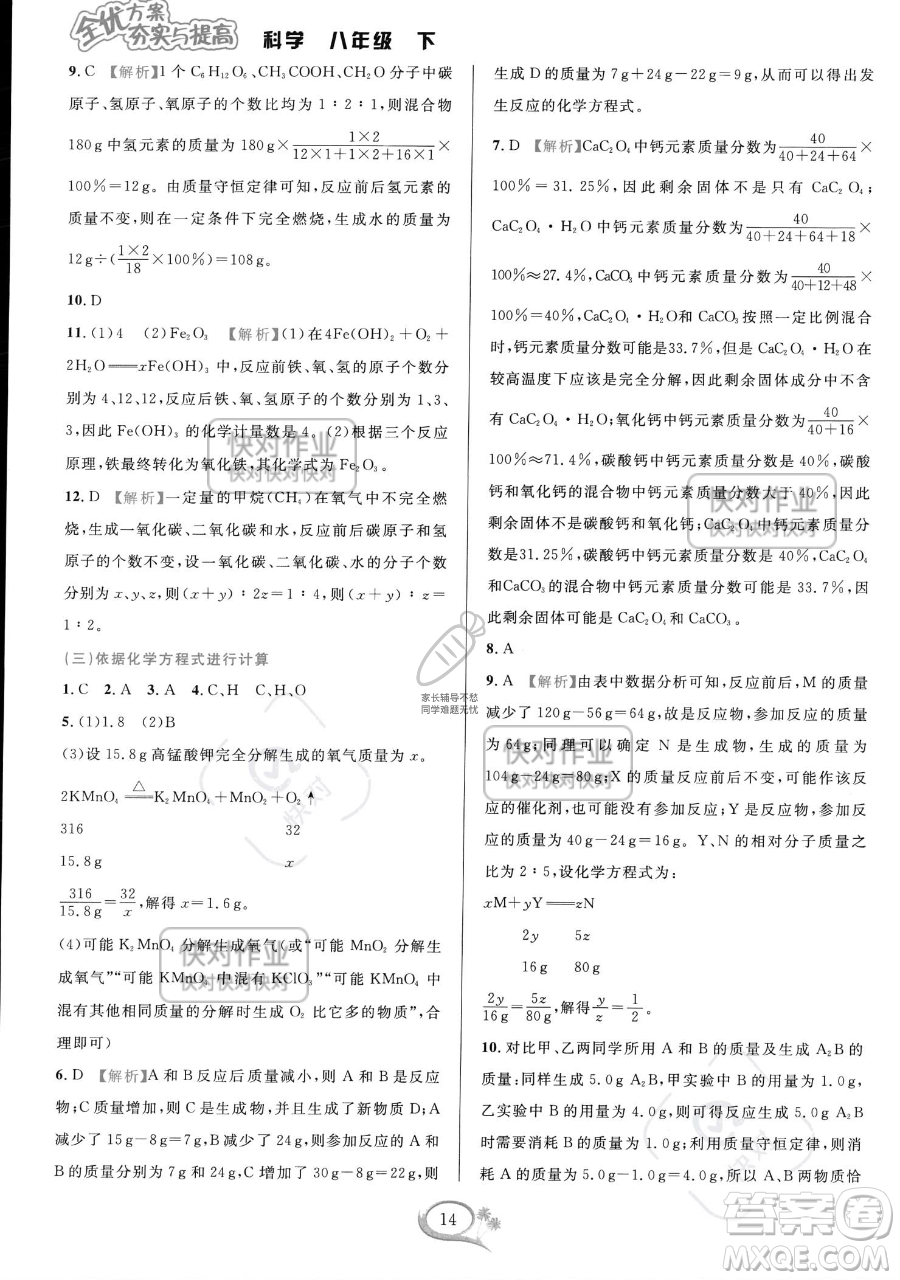 全优方案
夯实与提高
科学 八年级 下
9. C 【解析】1 个 C₆H₁₂O₆、CH₃COOH、CH₂O 分子中碳
原子、氢原子、氧原子的个数比均为 1∶2∶1,则混合物
180 g 中氢元素的质量为 180 g×(1×2)/(12×1+1×2+16×1)×
100%=12 g。由质量守恒定律可知,反应前后氢元素的
质量不变,则在一定条件下完全燃烧,生成水的质量为
12 g÷((1×2)/18×100%)=108 g。
10. D
11. (1)4 (2)Fe₂O₃ 【解析】(1)在 4Fe(OH)₂+O₂+
2H₂O══xFe(OH)₃ 中,反应前铁、氧、氢的原子个数分
别为 4、12、12,反应后铁、氧、氢的原子个数分别为 1、3、
3,因此 Fe(OH)₃ 的化学计量数是 4。(2)根据三个反应
原理,铁最终转化为氧化铁,其化学式为 Fe₂O₃。
12. D 【解析】一定量的甲烷(CH₄)在氧气中不完全燃
烧,生成一氧化碳、二氧化碳和水,反应前后碳原子和氢
原子的个数不变,设一氧化碳、二氧化碳、水的分子个数
分别为 x、y、z,则(x+y)∶2z=1∶4,所以(x+y)∶z=
1∶2。
(三)依据化学方程式进行计算
1. C 2. A 3. A 4. C、H C、H、O
5. (1)1.8 (2)B
(3)设 15.8 g 高锰酸钾完全分解生成的氧气质量为 x。
2KMnO₄ ══△ K₂MnO₄+MnO₂+O₂↑
316 32
15.8 g x
316/15.8 g=32/x,解得 x=1.6 g。
(4)可能 K₂MnO₄ 分解生成氧气(或“可能 MnO₂ 分解生
成氧气”“可能 KMnO₄ 中混有 KClO₃”“可能 KMnO₄ 中
混有其他相同质量的分解时生成 O₂ 比它多的物质”,合
理即可)
6. D 【解析】A 和 B 反应后质量减小,则 A 和 B 是反应
物;C 质量增加,可知生成物一定有 C,可能还有 D;A
减少了 15 g-8 g=7 g,B 减少了 24 g,则参加反应的 A 和
B 的质量分别为 7 g 和 24 g;C 增加了 30 g-8 g=22 g,则
生成 D 的质量为 7 g+24 g-22 g=9 g,从而可以得出发
生反应的化学方程式。
7. D 【解析】CaC₂O₄ 中钙元素质量分数为 40/(40+24+64)×
100%=31.25%,因此剩余固体不是只有 CaC₂O₄;
CaC₂O₄·H₂O 中钙元素质量分数为 40/(40+24+64+18)×
100%≈27.4%,CaCO₃ 中钙元素质量分数为 40/(40+12+48)×
100%=40%,CaC₂O₄·H₂O 和 CaCO₃ 按照一定比例混合
时,钙元素质量分数可能是33.7%,但是 CaC₂O₄·H₂O 在
较高温度下应该是完全分解,因此剩余固体成分中不含
有 CaC₂O₄·H₂O;氧化钙中钙元素质量分数为 40/(40+16)×
100%≈71.4%,碳酸钙中钙元素质量分数是 40%,碳酸
钙和氧化钙的混合物中钙元素质量分数大于 40%,因此
剩余固体不是碳酸钙和氧化钙;CaC₂O₄ 中钙元素质量分
数是31.25%,碳酸钙中钙元素质量分数是 40%,CaC₂O₄
和CaCO₃的混合物中钙元素质量分数可能是 33.7%,因
此剩余固体可能是 CaC₂O₄ 和 CaCO₃。
8. A
9. A 【解析】由表中数据分析可知,反应前后,M 的质量
减少了 120 g-56 g=64 g,故是反应物,参加反应的质量
为 64 g;同理可以确定 N 是生成物,生成的质量为
104 g-24 g=80 g;X 的质量反应前后不变,可能作该反
应的催化剂,也可能没有参加反应;Y 是反应物,参加反
应的质量为 40 g-24 g=16 g。Y、N的相对分子质量之
比为 2∶5,设化学方程式为:
xM+yY══zN
2y 5z
16 g 80 g
2y/16 g=5z/80 g,解得 y/z=1/2。
10. 对比甲、乙两同学所用 A 和 B 的质量及生成 A₂B 的
质量:同样生成 5.0 g A₂B,甲实验中 B 的质量为 1.0 g,
乙实验中 B 的质量为 2.0 g,说明得到 5.0 g A₂B 只
需要消耗 B 的质量为1.0 g;利用质量守恒定律,则消
耗 A 的质量为 5.0 g-1.0 g=4.0 g,所以 A、B 两物质恰
14
快对作业
快对快对快对
快对作业
快对快对快对
快对作业
快对快对快对
快对作业
快对快对快对
快对作业
快对快对快对
家长辅导不愁
同学难题无忧
快对
快对
答案卷
MXQE.COM